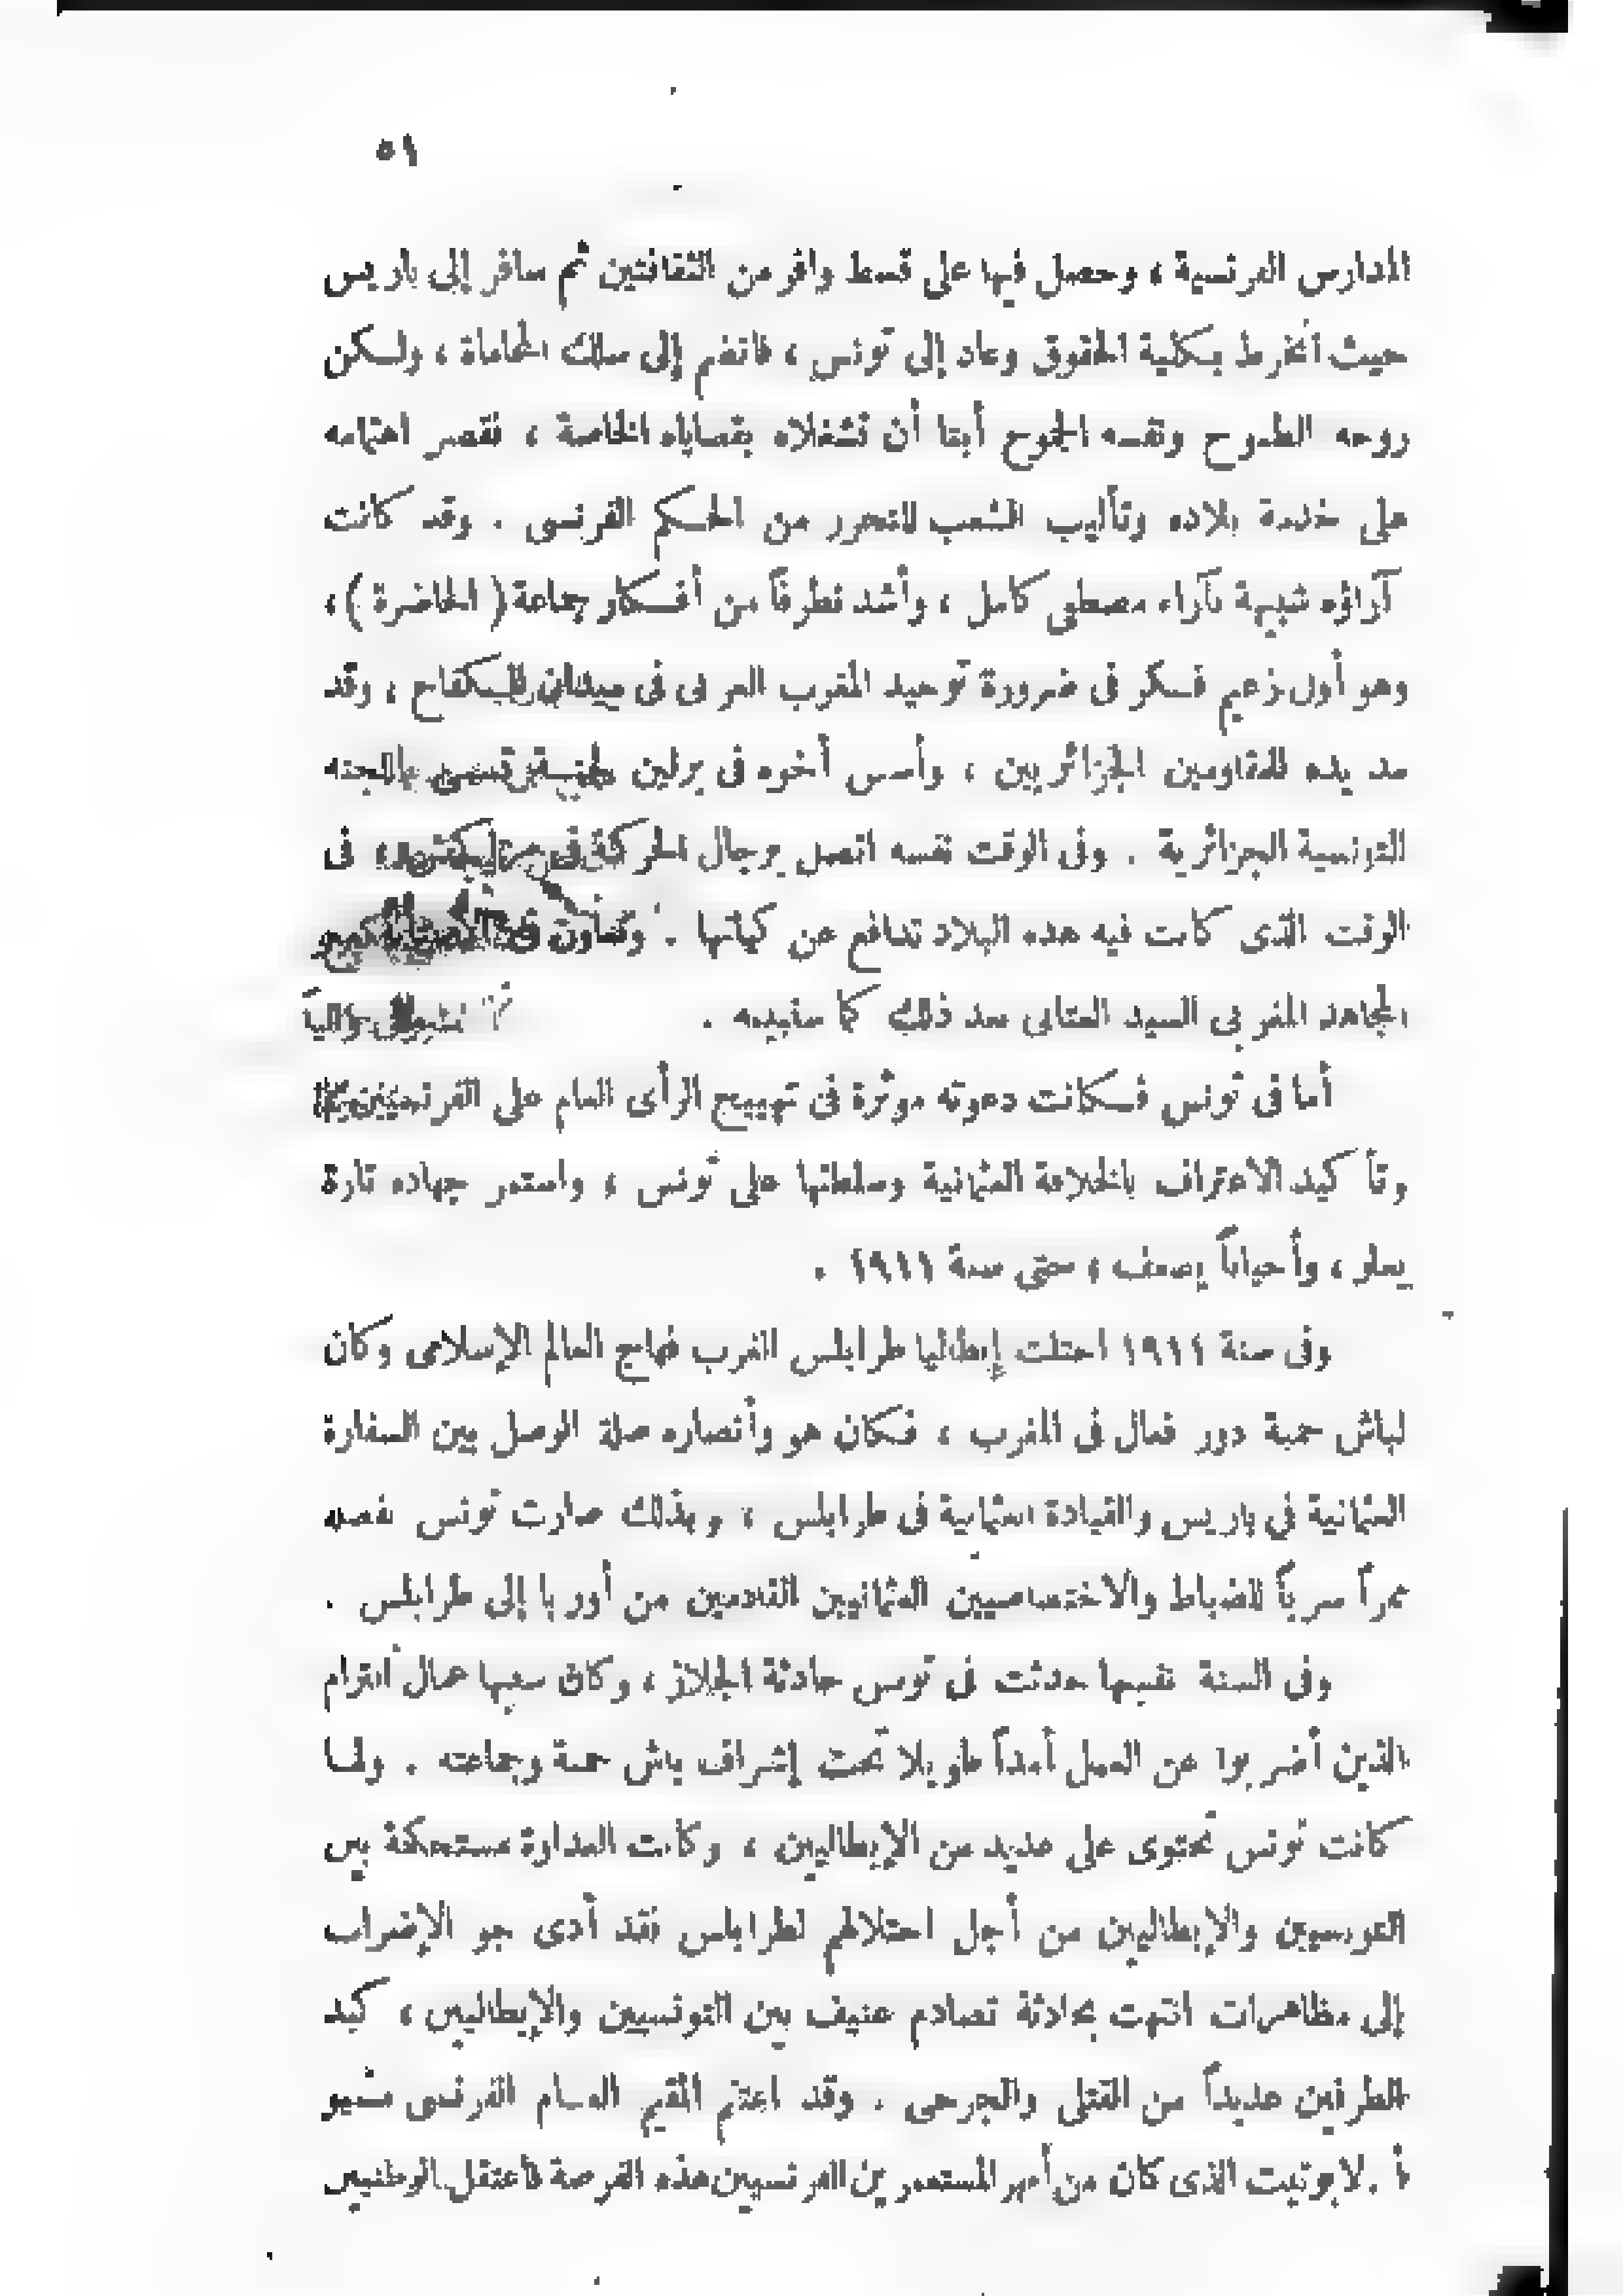 ٥١
المدارس الفرنسية ، وحصل فيها على قسط وافر من الثقافتين ثم سافر إلى باريس
حيث أنخرط بكلية الحقوق وعاد إلى تونس ، فانضم إلى سلك المحاماة ، ولكن
روحه الطموح ونفسه الجموح أبتا أن تشغلاه بقضاياه الخاصة ، فقصر اهتمامه
على خدمة بلاده وتأليب الشعب للتحرر من الحكم الفرنسى . وقد كانت
آراؤه شبيهة بآراء مصطفى كامل ، وأشد تطرفاً من أفكار جماعة ( الحاضرة ) ،
وهو أول زعيم فكر فى ضرورة توحيد المغرب العربى فى ميدان الكفاح ، وقد
مد يده للمقاومين الجزائريين ، وأسس أخوه فى برلين لجنة تسمى باللجنه
التونسية الجزائرية . وفى الوقت نفسه اتصل برجال الحركة فى مراكش ، فى
الوقت الذى كانت فيه هذه البلاد تدافع عن كيانها .
المجاهد المغربى السيد العتابى بعد ذلك كما سنبينه .
أما فى تونس فكانت دعوته موثرة فى تهييج الرأى العام على الفرنسيين
وتأكيد الاعتراف بالخلافة العثمانية وسلطتها على تونس ، واستمر جهاده تارة
يعلو ، وأحياناً يضعف ، حتى سنة ١٩١١ .
وفى سنة ١٩١١ احتلت إيطاليا طرابلس الغرب فهاج العالم الإسلامى وكان
لباش حمبة دور فعال فى المغرب ، فكان هو وأنصاره صلة الوصل بين السفارة
العثمانية في باريس والقيادة العثمانية فى طرابلس ، وبذلك صارت تونس نفسها
ممراً سرياً للضباط والاختصاصيين العثمانيين القادمين من أوربا إلى طرابلس .
وفى السنة نفسها حدثت فى تونس حادثة الجلاز ، وكان سببها عمال الترام
الذين أضربوا عن العمل أمداً طويلا تحت إشراف باش حمبة وجماعته . ولما
كانت تونس تحتوى على عديد من الإيطاليين ، وكانت العداوة مستحكمة بين
التونسيين والإيطاليين من أجل احتلالهم لطرابلس فقد أدى جو الإضراب
إلى مظاهرات انتهت بحادثة تصادم عنيف بين التونسيين والإيطاليين ، كبد
الطرفين عديداً من القتلى والجرحى . وقد اغتنم المقيم العام الفرنسى مسيو
أ . لابوتيت الذى كان من أمهر المستعمرين الفرنسيين هذه الفرصة فاعتقل الوطنيين